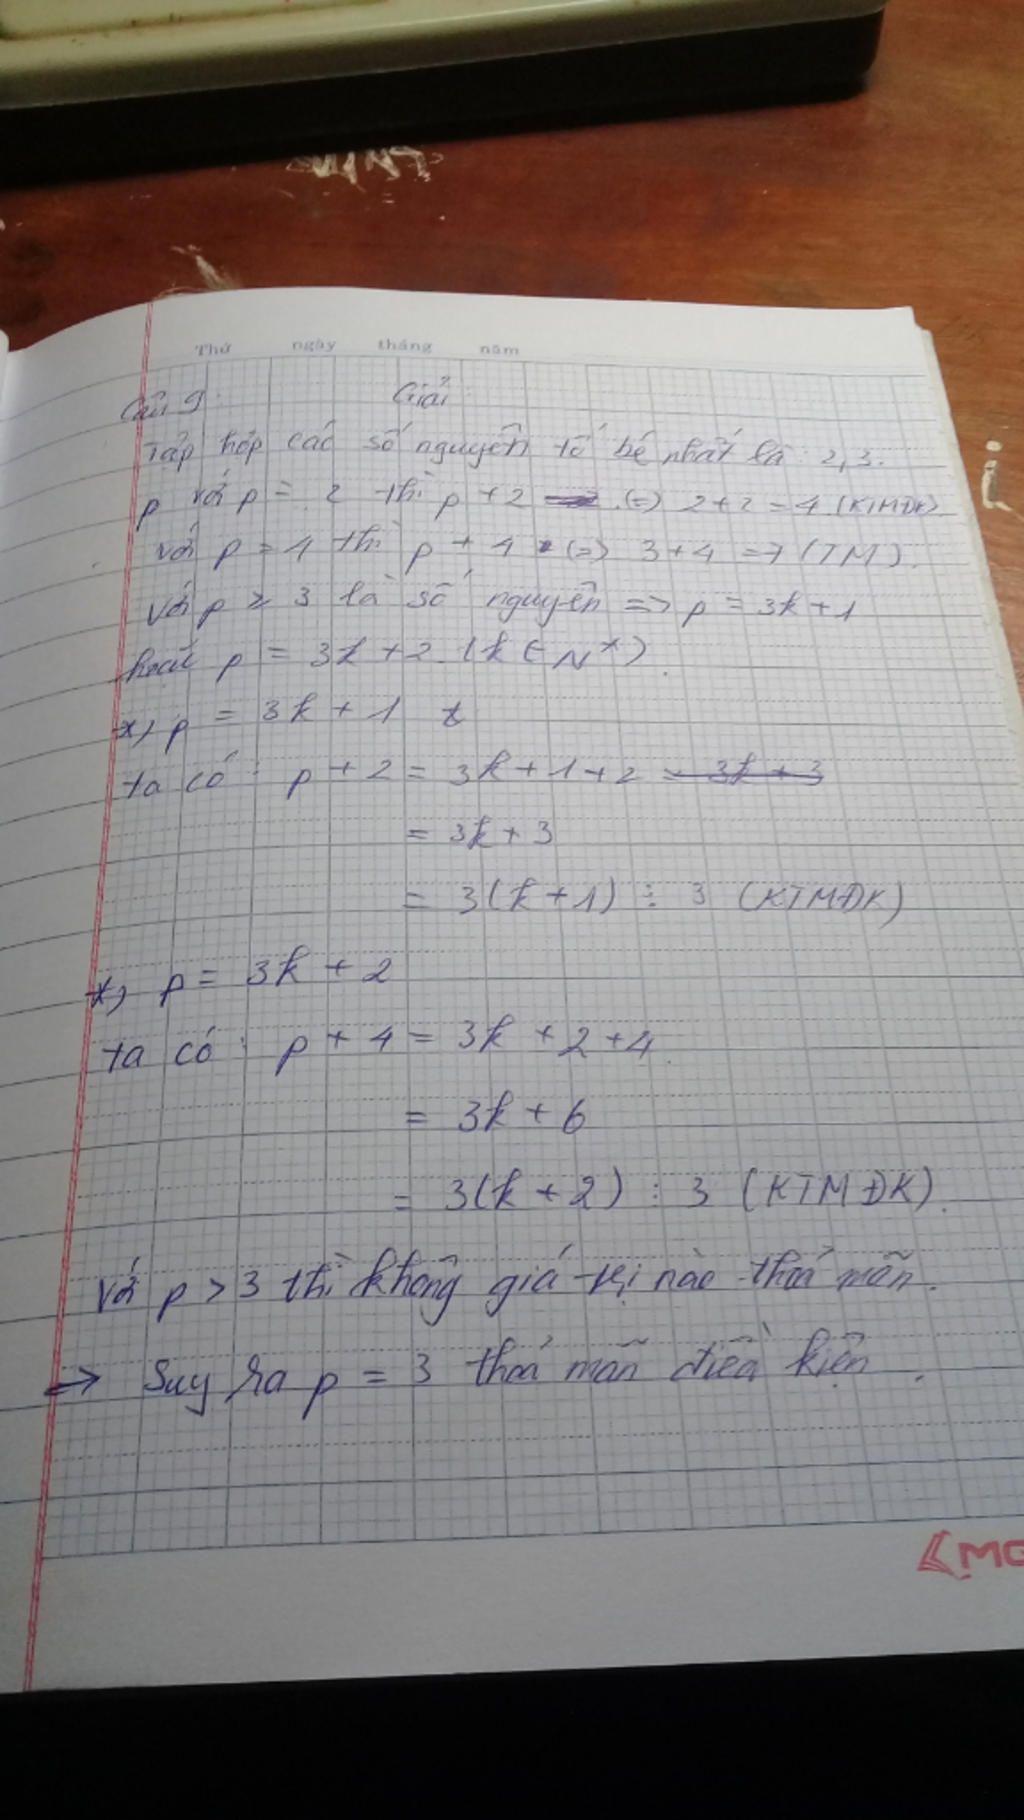 Thứ ngày tháng năm
Câu 9: Giải:
Tập hợp các số nguyên tố bé nhất là: 2, 3.
p với p = 2 thì p + 2 (=) 2 + 2 = 4 (KTMĐK)
với p = 4 thì p + 4 (=) 3 + 4 = 7 (TM).
với p ≥ 3 là số nguyên => p = 3k + 1
hoặc p = 3k + 2 (k ∈ N*)
*, p = 3k + 1 t
ta có: p + 2 = 3k + 1 + 2 = 3k + 3
= 3k + 3
= 3(k + 1) ⋮ 3 (KTMĐK)
*, p = 3k + 2
ta có: p + 4 = 3k + 2 + 4
= 3k + 6
= 3(k + 2) ⋮ 3 (KTMĐK).
với p > 3 thì không giá trị nào thoả mãn.
=> Suy ra p = 3 thoả mãn điều kiện.
MG